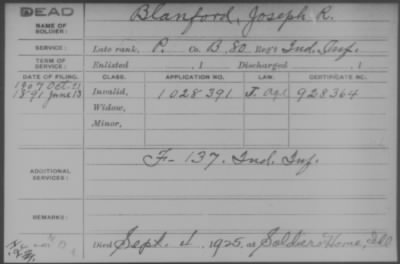 DEAD
NAME OF SOLDIER: Blanford, Joseph R.
SERVICE: Late rank, P. Co. B, 80 Reg't Ind. Inf.
TERM OF SERVICE: Enlisted , 1 Discharged , 1
DATE OF FILING. CLASS. APPLICATION NO. LAW. CERTIFICATE NO.
1907 Oct. 21
1891 June 13 Invalid, 1028391 J. Age 928364
Widow,
Minor,
ADDITIONAL SERVICES: F-137. Ind. Inf.
REMARKS:
Died Sept. 4, 1925, at Soldiers Home, Ill